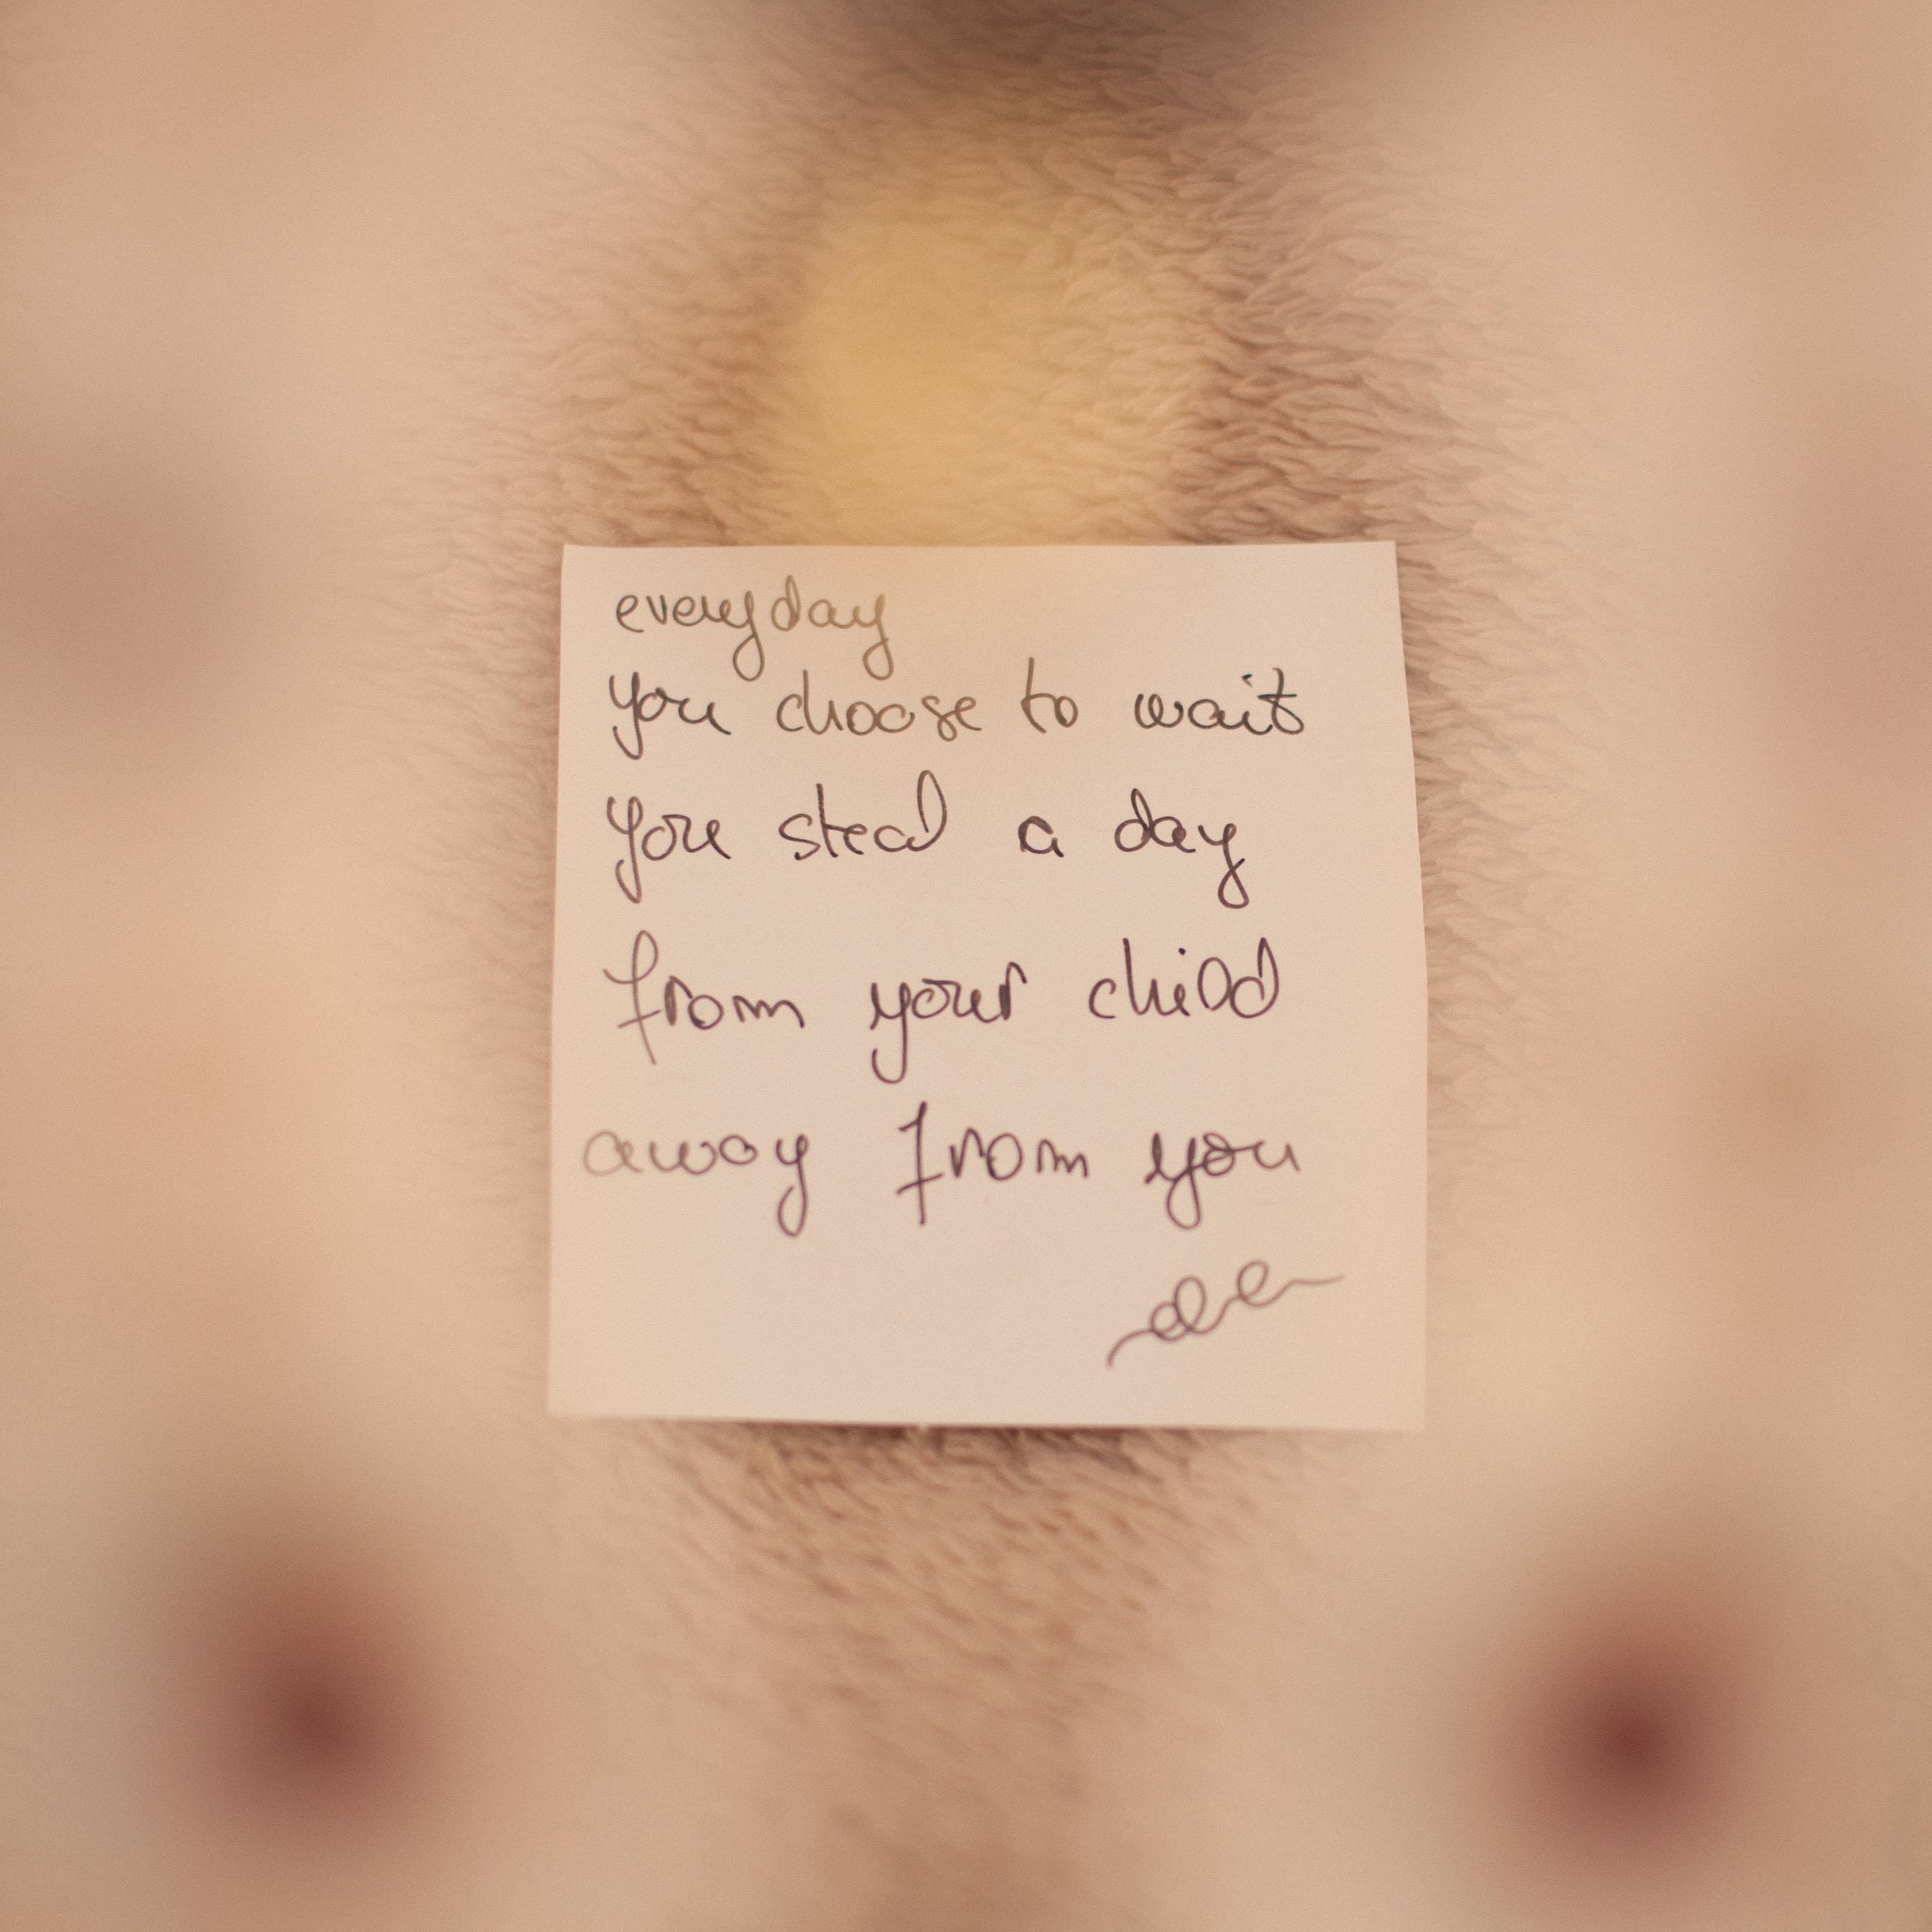 everyday
you choose to wait
you steal a day
from your child
away from you